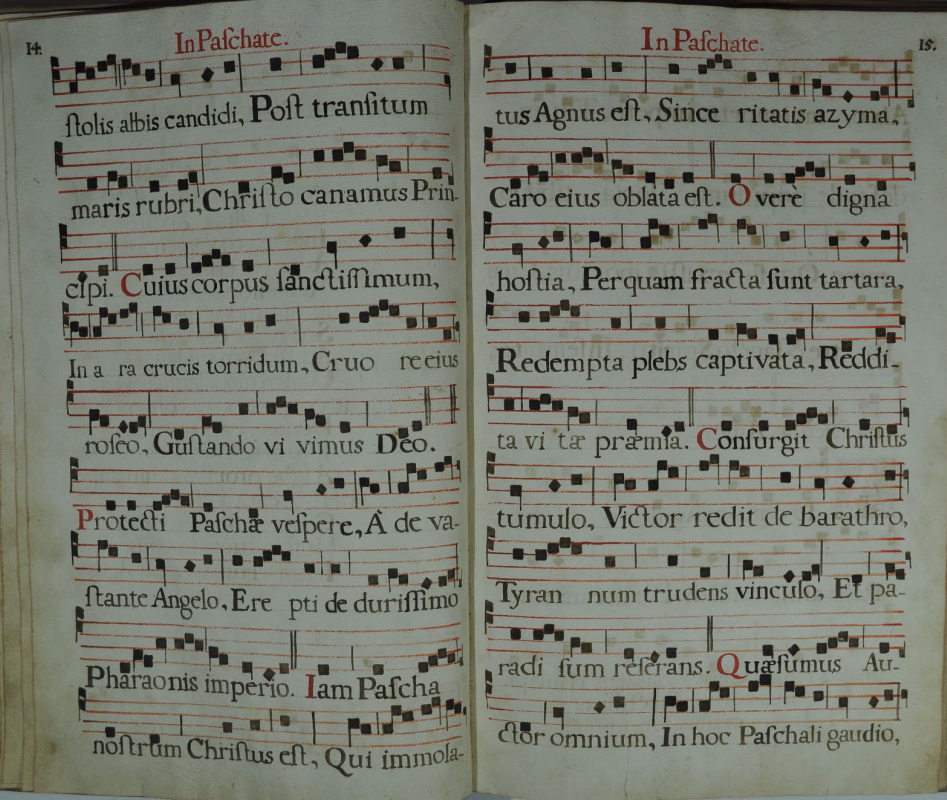 14.
In Paſchate.
ſtolis albis candidi, Poſt tranſitum
maris rubri, Chriſto canamus Prin-
cipi. Cuius corpus ſanctiſſimum,
In a ra crucis torridum, Cruo re eius
roſeo, Guſtando vi vimus Deo.
Protecti Paſchæ veſpere, À de va-
ſtante Angelo, Ere pti de duriſſimo
Pharaonis imperio. Iam Paſcha
noſtrum Chriſtus eſt, Qui immola-
In Paſchate.
15.
tus Agnus eſt, Since ritatis azyma,
Caro eius oblata eſt. O verè digna
hoſtia, Per quam fracta ſunt tartara,
Redempta plebs captivata, Reddi-
ta vi tæ præmia. Conſurgit Chriſtus
tumulo, Victor redit de barathro,
Tyran num trudens vinculo, Et pa-
radi ſum reſerans. Quæſumus Au-
ctor omnium, In hoc Paſchali gaudio,